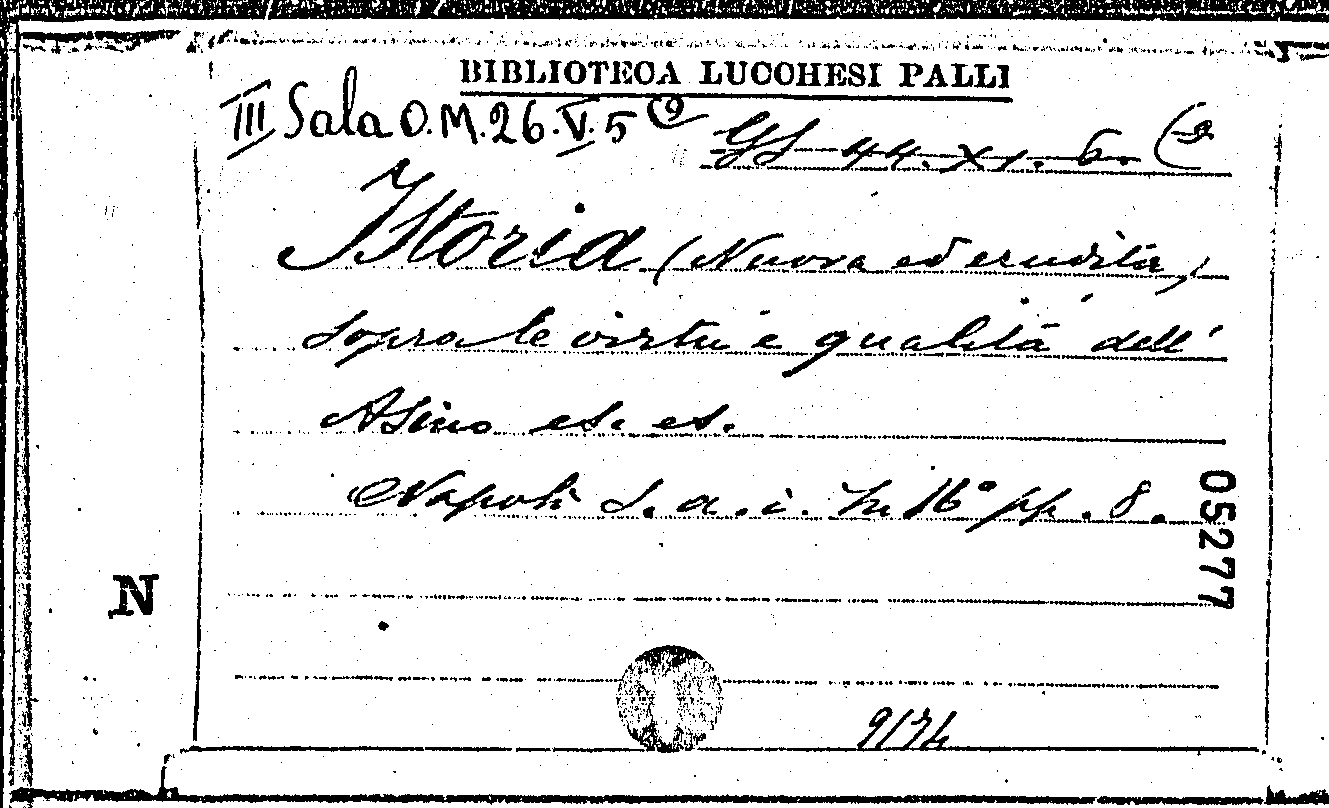 BIBLIOTECA LUCCHESI PALLI
III Sala O.M.26.V.5(9
44. XI. 6. (9
Istoria (Nuova ed erudita)
sopra le virtù e qualità dell'
Asino et. et.
Napoli s. a. i. In 16° pp. 8.
05277
N